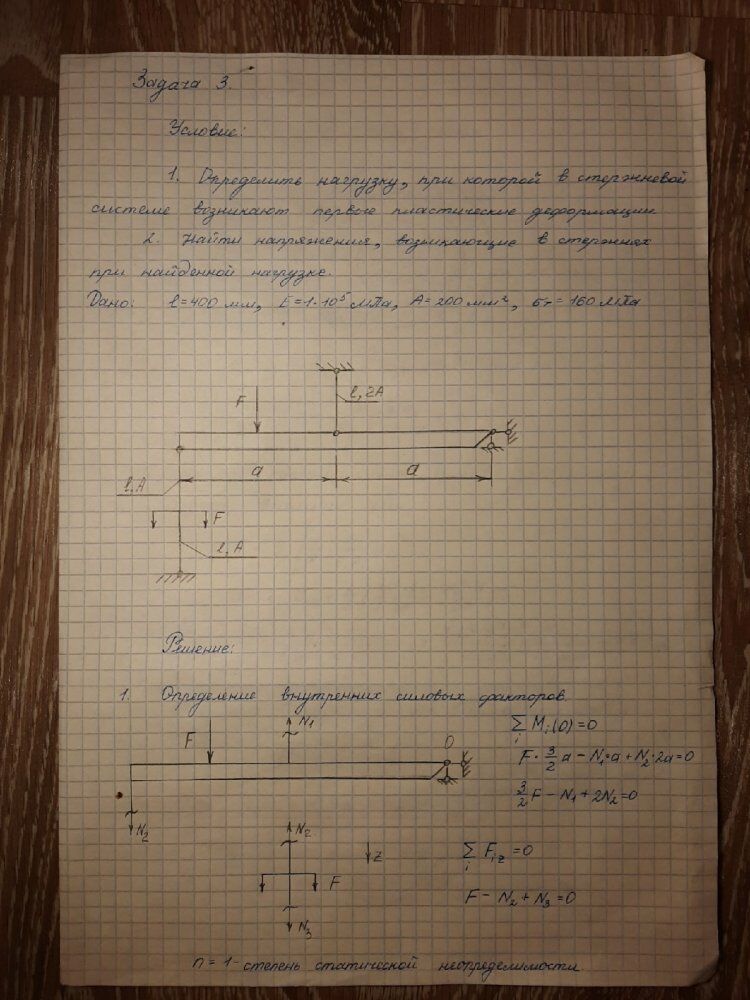 Задача 3.
Условие:
1. Определить нагрузку, при которой в стержневой
системе возникают первые пластические деформации.
2. Найти напряжения, возникающие в стержнях
при найденной нагрузке.
Дано: l=400 мм, E=1·10⁵ МПа, A=200 мм², σт=160 МПа
l, 2A
F
a
a
l, A
F
l, A
Решение:
1. Определение внутренних силовых факторов.
F
N₁
O
N₂
∑ Mᵢ(O)=0
i
F·3/2 a − N₁·a + N₂·2a=0
3/2 F − N₁ + 2N₂=0
N₂
F
z
N₃
∑ Fᵢz=0
i
F − N₂ + N₃=0
n=1 - степень статической неопределимости